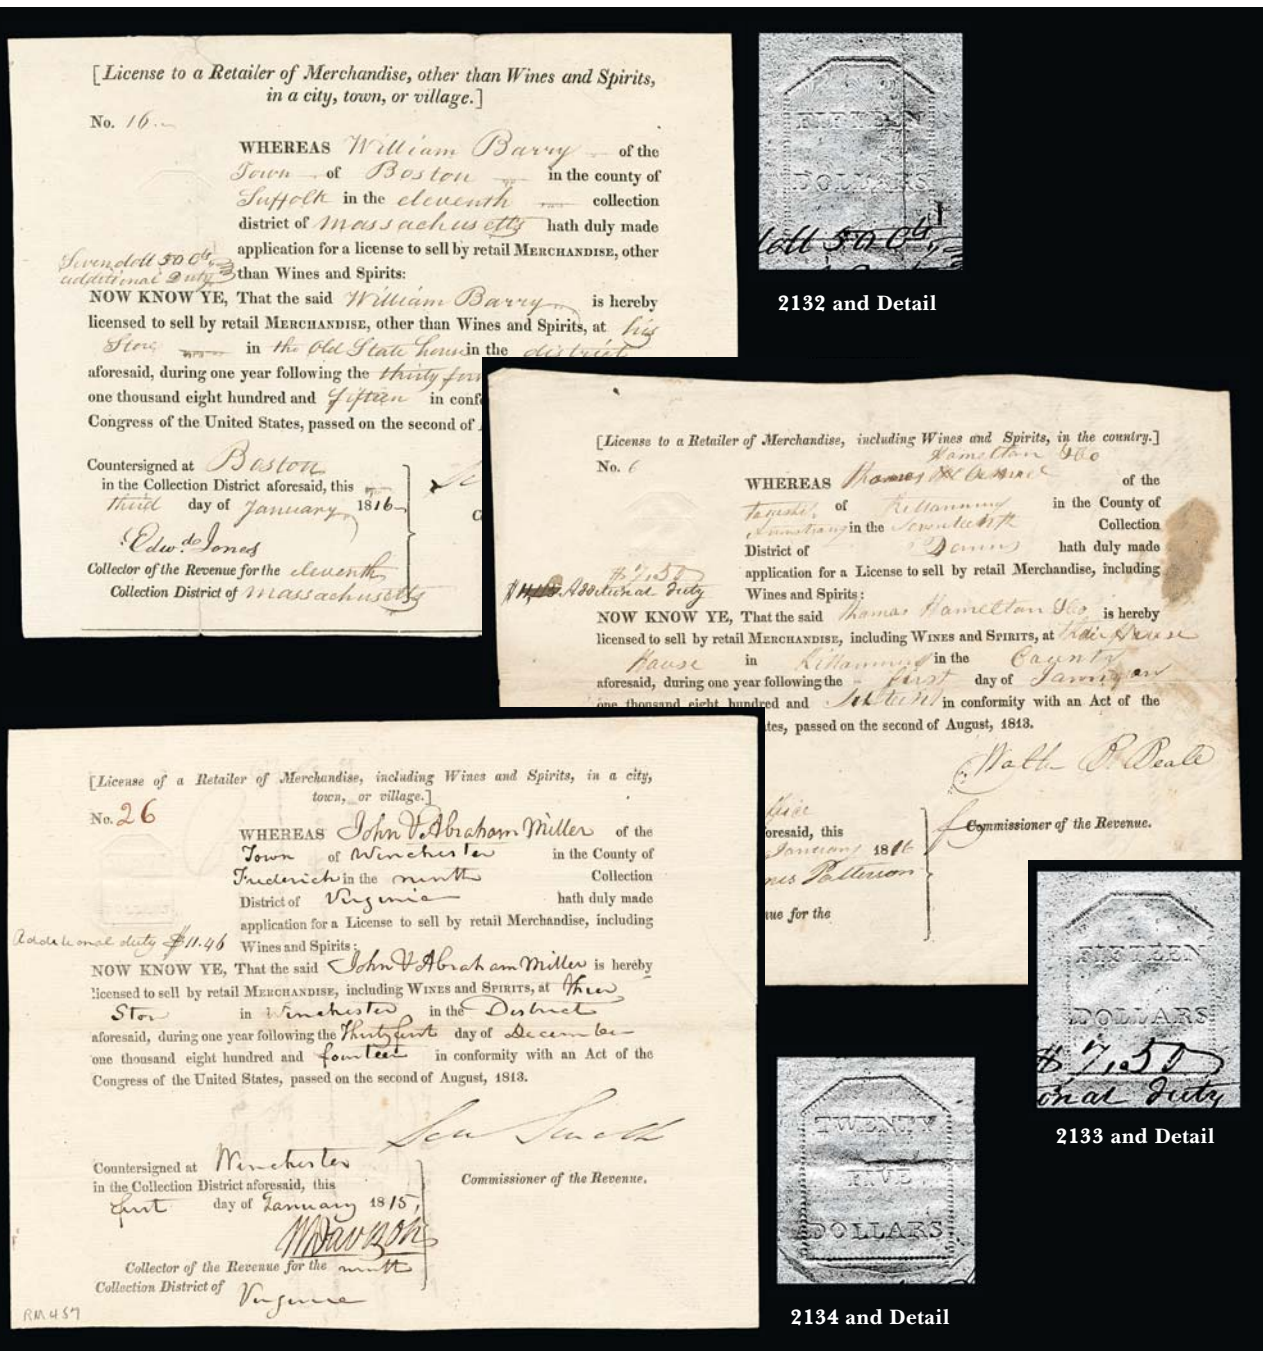 [License to a Retailer of Merchandise, other than Wines and Spirits,
in a city, town, or village.]
No. 16
WHEREAS William Barry of the
Town of Boston in the county of
Suffolk in the eleventh collection
district of Massachusetts hath duly made
application for a license to sell by retail MERCHANDISE, other
than Wines and Spirits:
Seven doll 50 Cts
additional Duty
NOW KNOW YE, That the said William Barry is hereby
licensed to sell by retail MERCHANDISE, other than Wines and Spirits, at his
Store in the Old State house in the district
aforesaid, during one year following the thirty
one thousand eight hundred and fifteen in conf
Congress of the United States, passed on the second of
Countersigned at Boston
in the Collection District aforesaid, this
third day of January 1816
Edwd Jones
Collector of the Revenue for the eleventh
Collection District of Massachusetts
FIFTEEN
DOLLARS
doll 50 Cts
2132 and Detail
[License to a Retailer of Merchandise, including Wines and Spirits, in the country.]
Hamelton & Co
No. 6
WHEREAS Thomas of the
of Kittanning in the County of
Armstrong in the Seventeenth Collection
District of hath duly made
application for a License to sell by retail Merchandise, including
Wines and Spirits:
$7.50
Additional duty
NOW KNOW YE, That the said Thomas Hamelton & Co is hereby
licensed to sell by retail MERCHANDISE, including WINES and SPIRITS, at their House
House in Kittanning in the County
aforesaid, during one year following the first day of January
one thousand eight hundred and Sixteen in conformity with an Act of the
tes, passed on the second of August, 1813.
fice
oresaid, this
January 1816
mes Patterson
nue for the
Commissioner of the Revenue.
FIFTEEN
DOLLARS
$7.50
onal duty
2133 and Detail
[License of a Retailer of Merchandise, including Wines and Spirits, in a city,
town, or village.]
No. 26
WHEREAS John & Abraham Miller of the
Town of Winchester in the County of
Frederick in the ninth Collection
District of Virginia hath duly made
application for a License to sell by retail Merchandise, including
Additional duty $11.46 Wines and Spirits:
NOW KNOW YE, That the said John & Abraham Miller is hereby
licensed to sell by retail MERCHANDISE, including WINES and SPIRITS, at their
Stor in Winchester in the District
aforesaid, during one year following the Thirty first day of December
one thousand eight hundred and fourteen in conformity with an Act of the
Congress of the United States, passed on the second of August, 1813.
Smith
Countersigned at Winchester
in the Collection District aforesaid, this
first day of January 1815,
Commissioner of the Revenue.
WDavison
Collector of the Revenue for the ninth
Collection District of
Virginia
RM457
TWENTY
FIVE
DOLLARS
2134 and Detail